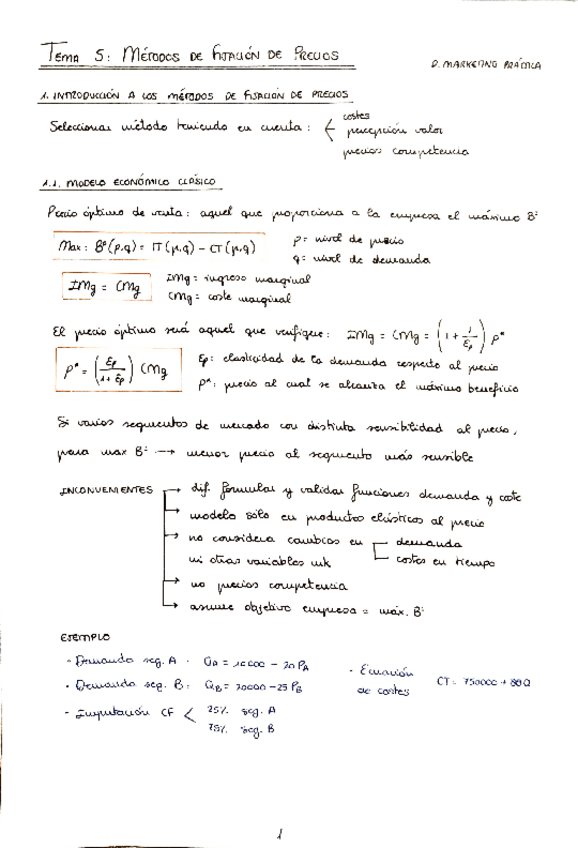 TEMA 5: MÉTODOS DE FIJACIÓN DE PRECIOS
D. MARKETING PRÁCTICA
1. INTRODUCCIÓN A LOS MÉTODOS DE FIJACIÓN DE PRECIOS
Seleccionar método teniendo en cuenta: costes
percepción valor
precios competencia
1.1. MODELO ECONÓMICO CLÁSICO
Precio óptimo de venta: aquel que proporciona a la empresa el máximo Bº
Max: Bº(p,q) = IT(p,q) - CT(p,q)
p= nivel de precio
q= nivel de demanda
IMg = CMg
IMg= ingreso marginal
CMg= coste marginal
El precio óptimo será aquel que verifique: IMg = CMg = (1 + 1/Ep) p*
p* = (Ep/1+Ep) CMg
Ep: elasticidad de la demanda respecto al precio
p*: precio al cual se alcanza el máximo beneficio
Si varios segmentos de mercado con distinta sensibilidad al precio,
para max Bº → menor precio al segmento más sensible
INCONVENIENTES → dif. formular y validar funciones demanda y coste
→ modelo sólo en productos elásticos al precio
→ no considera cambios en demanda
ni otras variables mk
costes en tiempo
→ no precios competencia
→ asume objetivo empresa = máx. Bº
EJEMPLO
- Demanda seg. A: QA = 10000 - 20 PA
- Demanda seg. B: QB = 20000 - 25 PB
- Ecuación
de costes
CT= 750000 + 80Q
- Imputación CF < 25% seg. A
75% seg. B
1